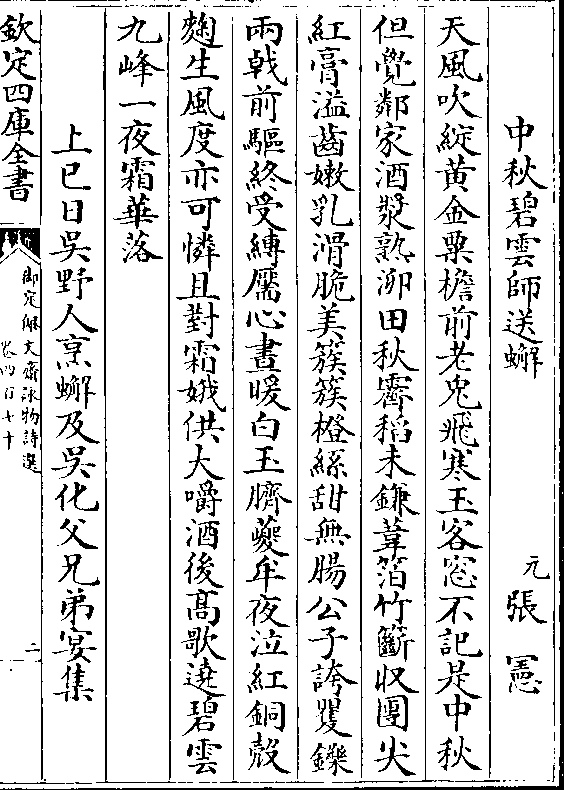 中秋碧雲師送蠏
元張憲
天風吹綻黄金粟檐前老兎飛寒玉客窓不記是中秋
但覺鄰家酒漿熟泖田秋霽稻未鎌葦箔竹籪収團尖
紅膏溢齒嫩乳滑脆美簇簇橙絲甜無腸公子誇矍鑠
兩㦸前驅終受縛厴心晝暖白玉臍夔牟夜泣紅銅殼
麴生風度亦可憐且對霜娥供大嚼酒後髙歌遶碧雲
九峰一夜霜華落
上巳日吳野人烹蠏及吳化父兄弟宴集
欽定四庫全書
御定佩文齋詠物詩選
卷四百七十
二